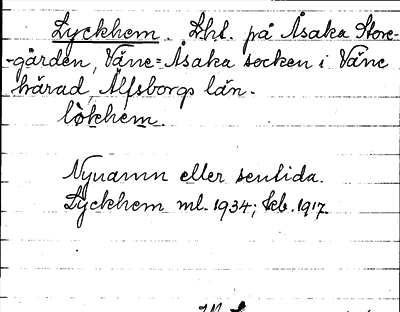 Lyckhem. Lht. på Åsaka Store-
-gården, Väne-Åsaka socken i Väne
härad, Älfsborgs län.
lòkhem.
Nynamn eller sentida.
Lyckhem ml. 1934; kb. 1917.